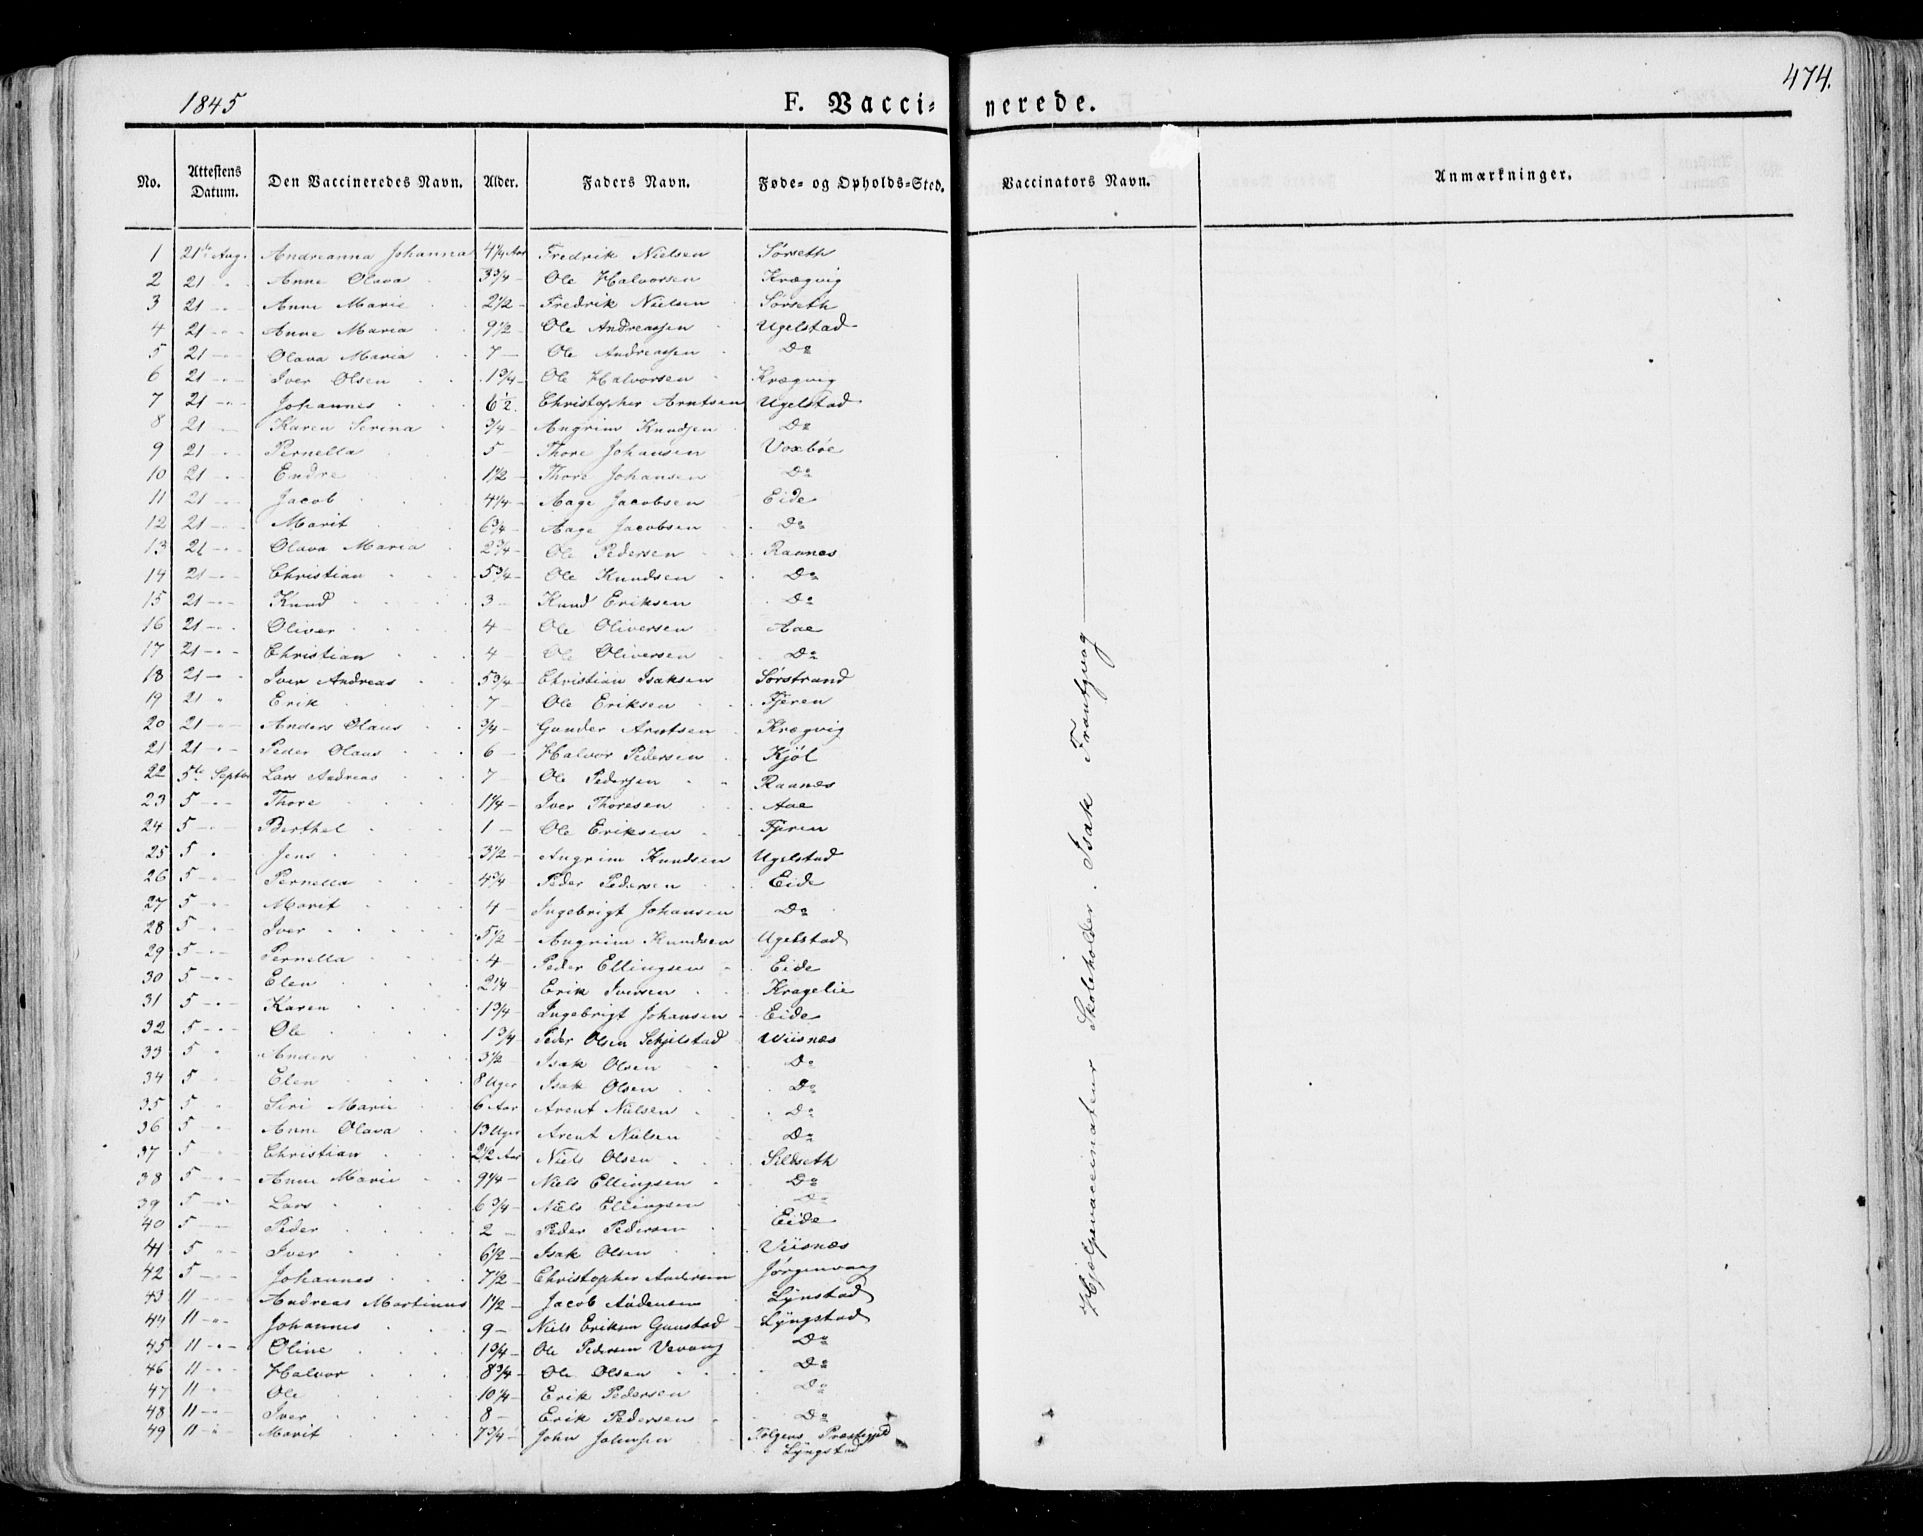 474.
1845 F. Vaccinerede.
No. Attestens Datum. Den Vaccineredes Navn. Alder. Faders Navn. Føde- og Opholds-Sted. Vaccinators Navn. Anmærkninger.
1 21de Aug. Andreanna Johanna 4 1/4 Aar Fredrik Nielsen Sørseth
2 21 Anne Olava 3 3/4 - Ole Halvorsen Krægvig
3 21 Anne Marie 2 1/2 - Fredrik Nielsen Sørseth
4 21 Anne Maria 9 1/2 - Ole Andreassen Ugelstad
5 21 Olava Maria 7 - Ole Andreassen Do
6 21 Iver Olsen 1 3/4 - Ole Halvorsen Krægvig
7 21 Johannes 6 1/2 Christopher Arntsen Ugelstad
8 21 Karen Serina 3/4 - Angrim Knudsen Do
9 21 Pernella 5 - Thore Johansen Voxbøe
10 21 Endre 1 1/2 - Thore Johansen Do
11 21 Jacob 4 1/4 - Aage Jacobsen Eide
12 21 Marit 6 3/4 - Aage Jacobsen Do
13 21 Olava Maria 2 3/4 - Ole Pedersen Raanes
14 21 Christian 5 3/4 - Ole Knudsen Do
15 21 Knud 3 - Knud Eriksen Do
16 21 Oliver 4 - Ole Oliversen Aae
17 21 Christian 4 - Ole Oliversen Do
18 21 Iver Andreas 5 3/4 - Christian Isaksen Sørstrand
19 21 Erik 7 - Ole Eriksen Fjeren
20 21 Anders Olaus 3/4 - Gunder Arntsen Krægvig
21 21 Peder Olaus 6 - Halvor Pedersen Kjøl
22 5te Septbr Lars Andreas 7 - Ole Pedersen Raanes
23 5 Thore 1 1/4 - Iver Thoresen Aae
24 5 Berthel 1 - Ole Eriksen Fjeren
25 5 Jens 3 1/2 - Angrim Knudsen Ugelstad
26 5 Pernella 4 3/4 Peder Pedersen Eide
27 5 Marit 4 - Ingebrigt Johansen Do
28 5 Iver 5 1/2 - Angrim Knudsen Ugelstad
29 5 Pernella 4 - Peder Ellingsen Eide
30 5 Elen 2 1/4 Erik Iversen Kragelie
31 5 Karen 1 3/4 - Ingebrigt Johansen Eide
32 5 Ole 1 3/4 Peder Olsen Schjelstad Wiisnæs
33 5 Anders 3 1/2 Isak Olsen Do
34 5 Elen 8 Uger Isak Olsen Do
35 5 Siri Marie 6 Aar Arent Nielsen Do
36 5 Anne Olava 13 Uger Arent Nielsen Do
37 5 Christian 2 1/2 Aar Niels Olsen Sildseth
38 5 Anne Marie 9 1/4 - Niels Ellingsen Do
39 5 Lars 6 3/4 - Niels Ellingsen Do
40 5 Peder 2 - Peder Pedersen Eide
41 5 Iver 6 1/2 - Isak Olsen Viisnæs
42 5 Johannes 7 1/2 - Christopher Andersen Jørgenvaag
43 11 Andreas Martinus 1 1/2 - Jacob Audensen Lÿnstad
44 11 Johannes 9 - Niels Eriksen Gunstad Lÿngstad
45 11 Oline 1 3/4 - Ole Pedersen Vevang Do
46 11 Halvor 8 3/4 - Ole Olsen Do
47 11 Ole 10 1/4 - Erik Pedersen Do
48 11 Iver 8 - Erik Pedersen Do
49 11 Marit 7 3/4 - John Johnsen Præstegjeld
Lÿngstad
Hjelpevaccinateur Skoleholder Isak